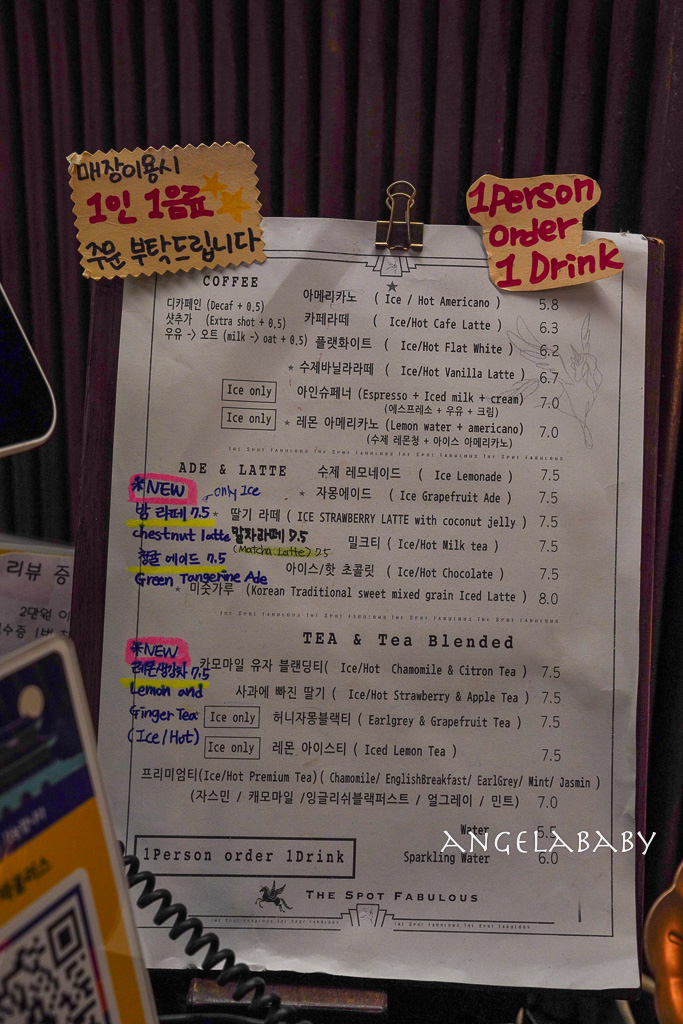 매장이용시
1인 1음료
주문 부탁드립니다
1Person
order
1 Drink
COFFEE
디카페인 (Decaf + 0.5)
샷추가 (Extra shot + 0.5)
우유 -> 오트 (milk -> oat + 0.5)
아메리카노 ( Ice / Hot Americano ) 5.8
카페라떼 ( Ice/Hot Cafe Latte ) 6.3
플랫화이트 ( Ice/Hot Flat White ) 6.2
* 수제바닐라라떼 ( Ice/Hot Vanilla Latte ) 6.7
Ice only 아인슈페너 (Espresso + Iced milk + cream) 7.0
(에스프레소 + 우유 + 크림)
Ice only * 레몬 아메리카노 (Lemon water + americano) 7.0
(수제 레몬청 + 아이스 아메리카노)
The Spot Fabulous The Spot Fabulous The Spot Fabulous The Spot Fabulous The Spot Fabulous
ADE & LATTE 수제 레모네이드 ( Ice Lemonade ) 7.5
*NEW only Ice * 자몽에이드 ( Ice Grapefruit Ade ) 7.5
밤 라떼 7.5 * 딸기 라떼 ( ICE STRAWBERRY LATTE with coconut jelly ) 7.5
chestnut latte 말차라떼 7.5 밀크티 ( Ice/Hot Milk tea ) 7.5
(Matcha Latte) 7.5
청귤 에이드 7.5 아이스/핫 초콜릿 ( Ice/Hot Chocolate ) 7.5
Green Tangerine Ade
* 미숫가루 (Korean Traditional sweet mixed grain Iced Latte ) 8.0
The Spot Fabulous The Spot Fabulous The Spot Fabulous The Spot Fabulous The Spot Fabulous
TEA & Tea Blended
*NEW
레몬생강차 7.5 카모마일 유자 블랜딩티( Ice/Hot Chamomile & Citron Tea ) 7.5
Lemon and 사과에 빠진 딸기 ( Ice/Hot Strawberry & Apple Tea ) 7.5
Ginger Tea Ice only 허니자몽블랙티 ( Earlgrey & Grapefruit Tea ) 7.5
(Ice/Hot) Ice only 레몬 아이스티 ( Iced Lemon Tea ) 7.5
프리미엄티(Ice/Hot Premium Tea)( Chamomile/ EnglishBreakfast/ EarlGrey/ Mint/ Jasmin )
(자스민 / 캐모마일 /잉글리쉬블랙퍼스트 / 얼그레이 / 민트) 7.0
Water 5.5
ANGELABABY
1Person order 1Drink
Sparkling Water 6.0
The Spot Fabulous
The Spot Fabulous The Spot Fabulous The Spot Fabulous The Spot Fabulous
리뷰 증
2만원 이